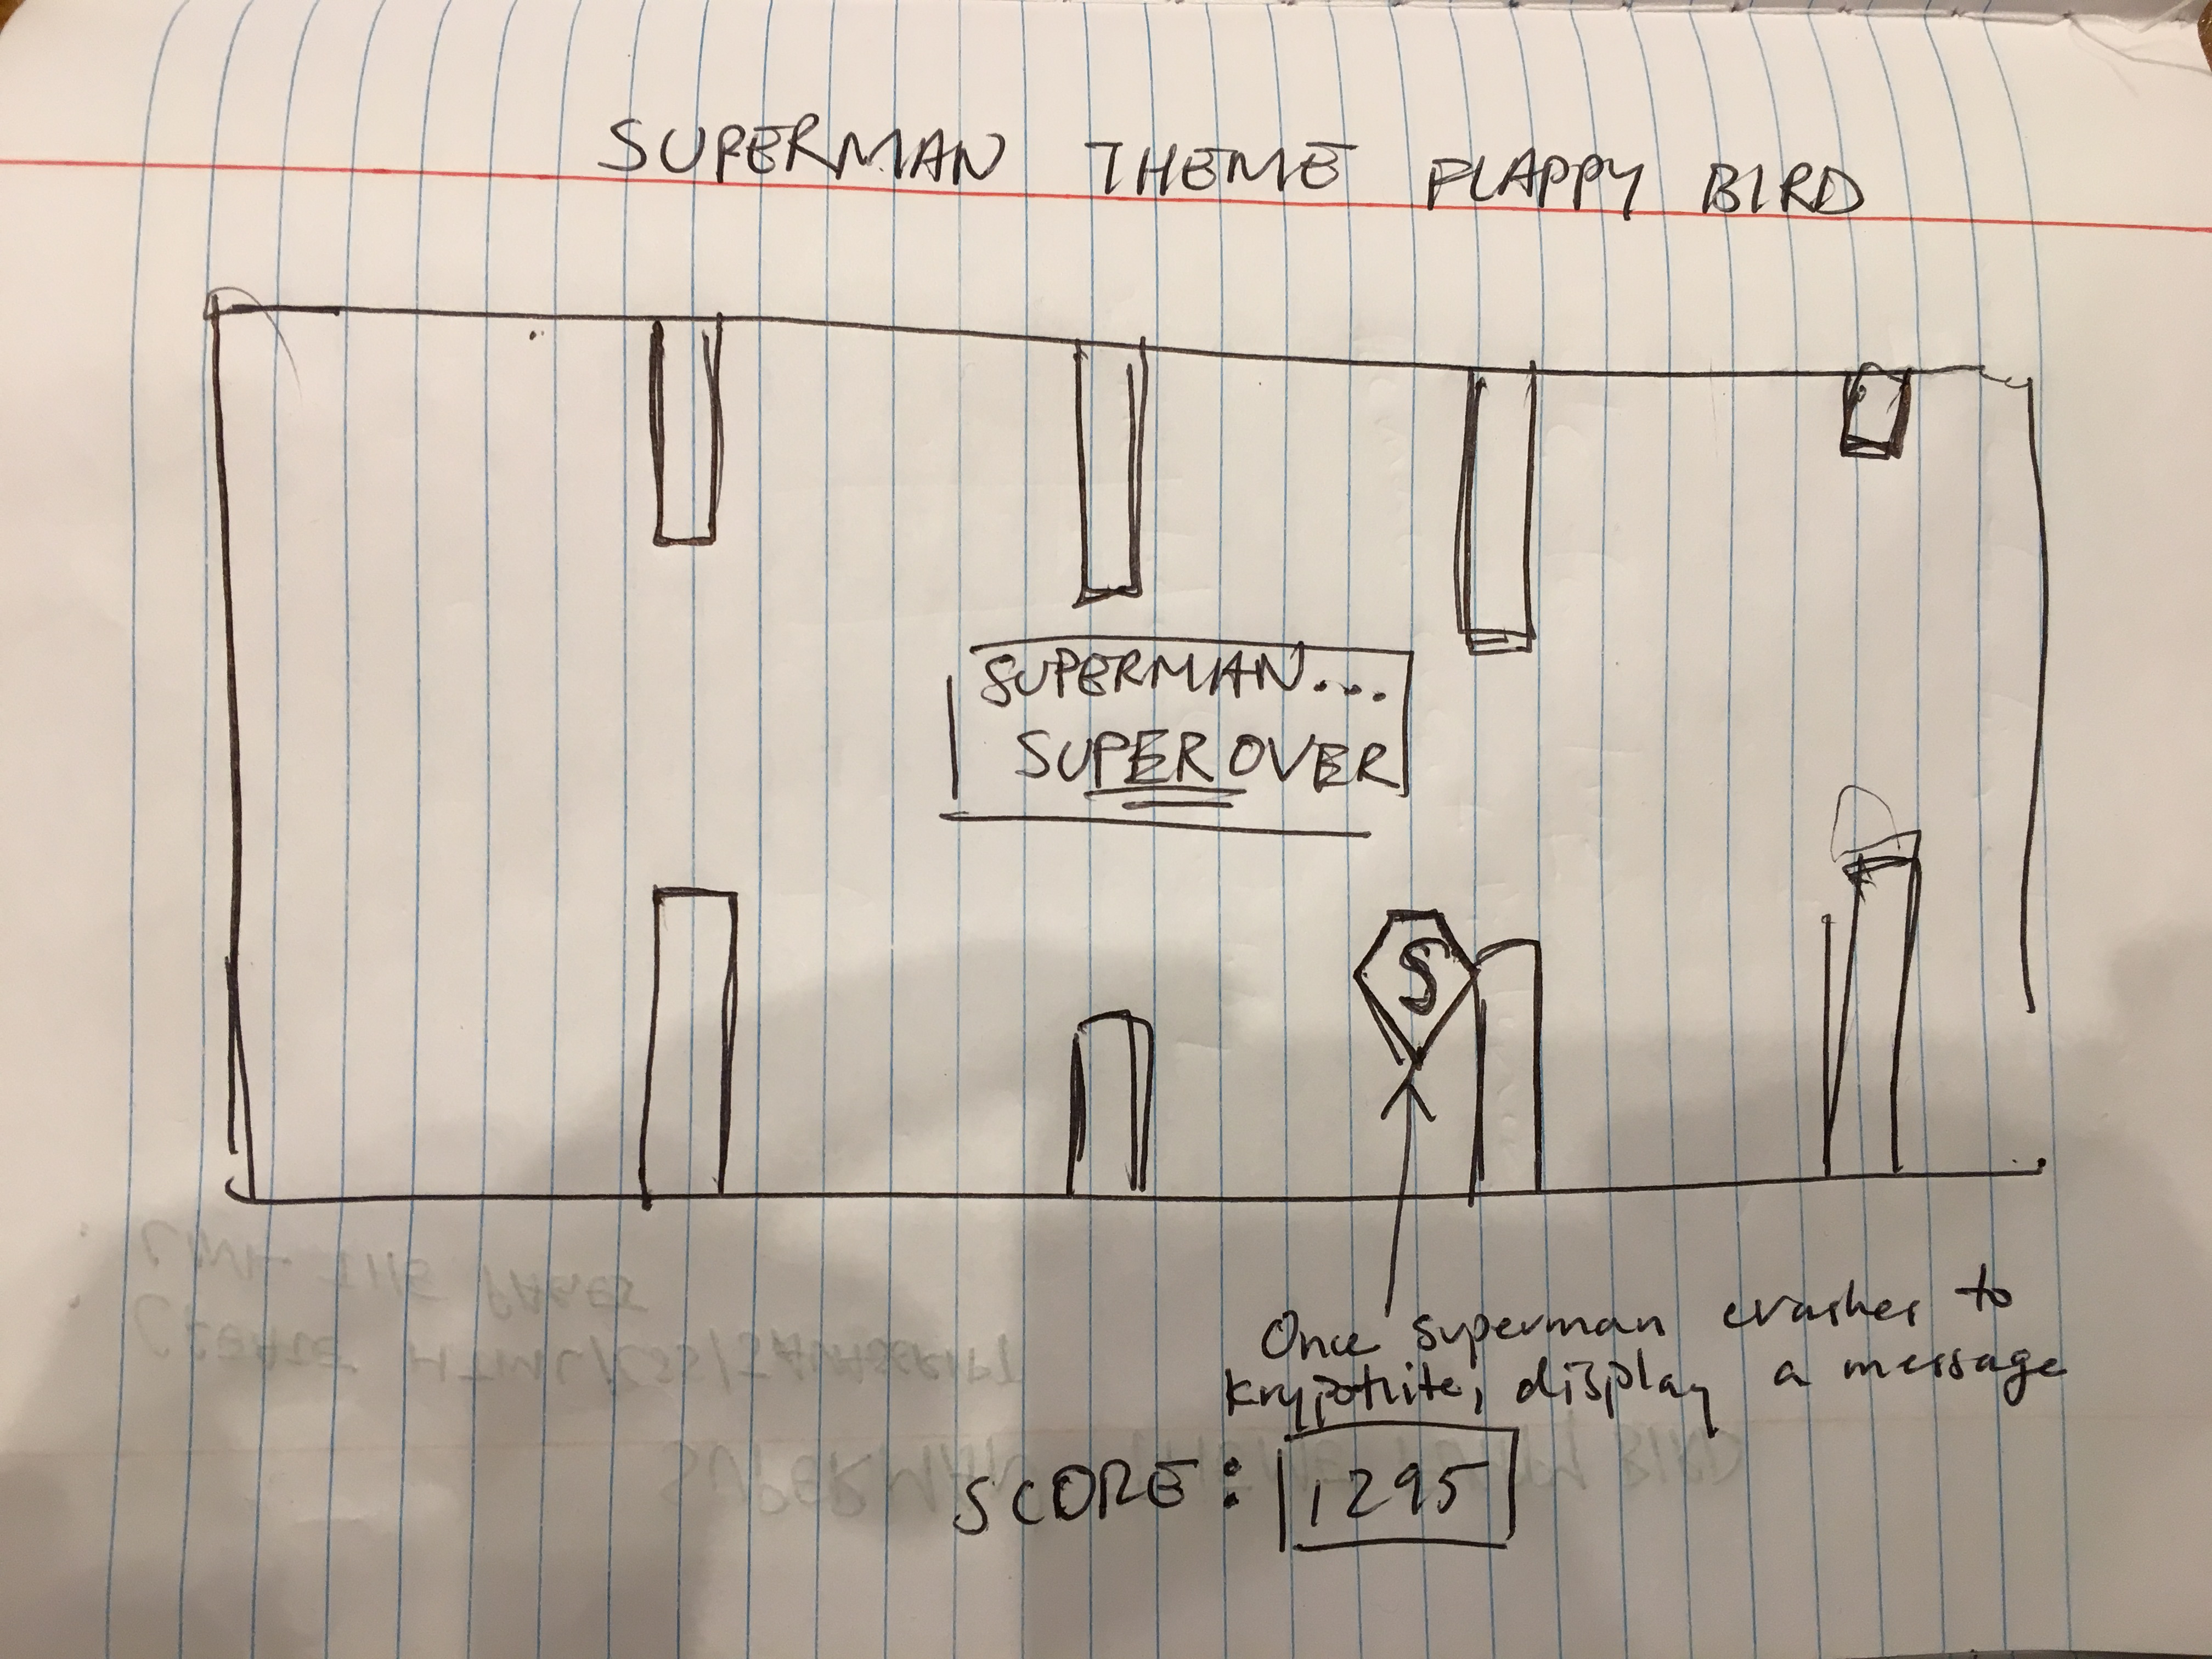 SUPERMAN THEME PLAPPY BIRD
SUPERMAN...
SUPER OVER
S
Once superman crashes to
kryptonite, display a message
SCORE: 1295